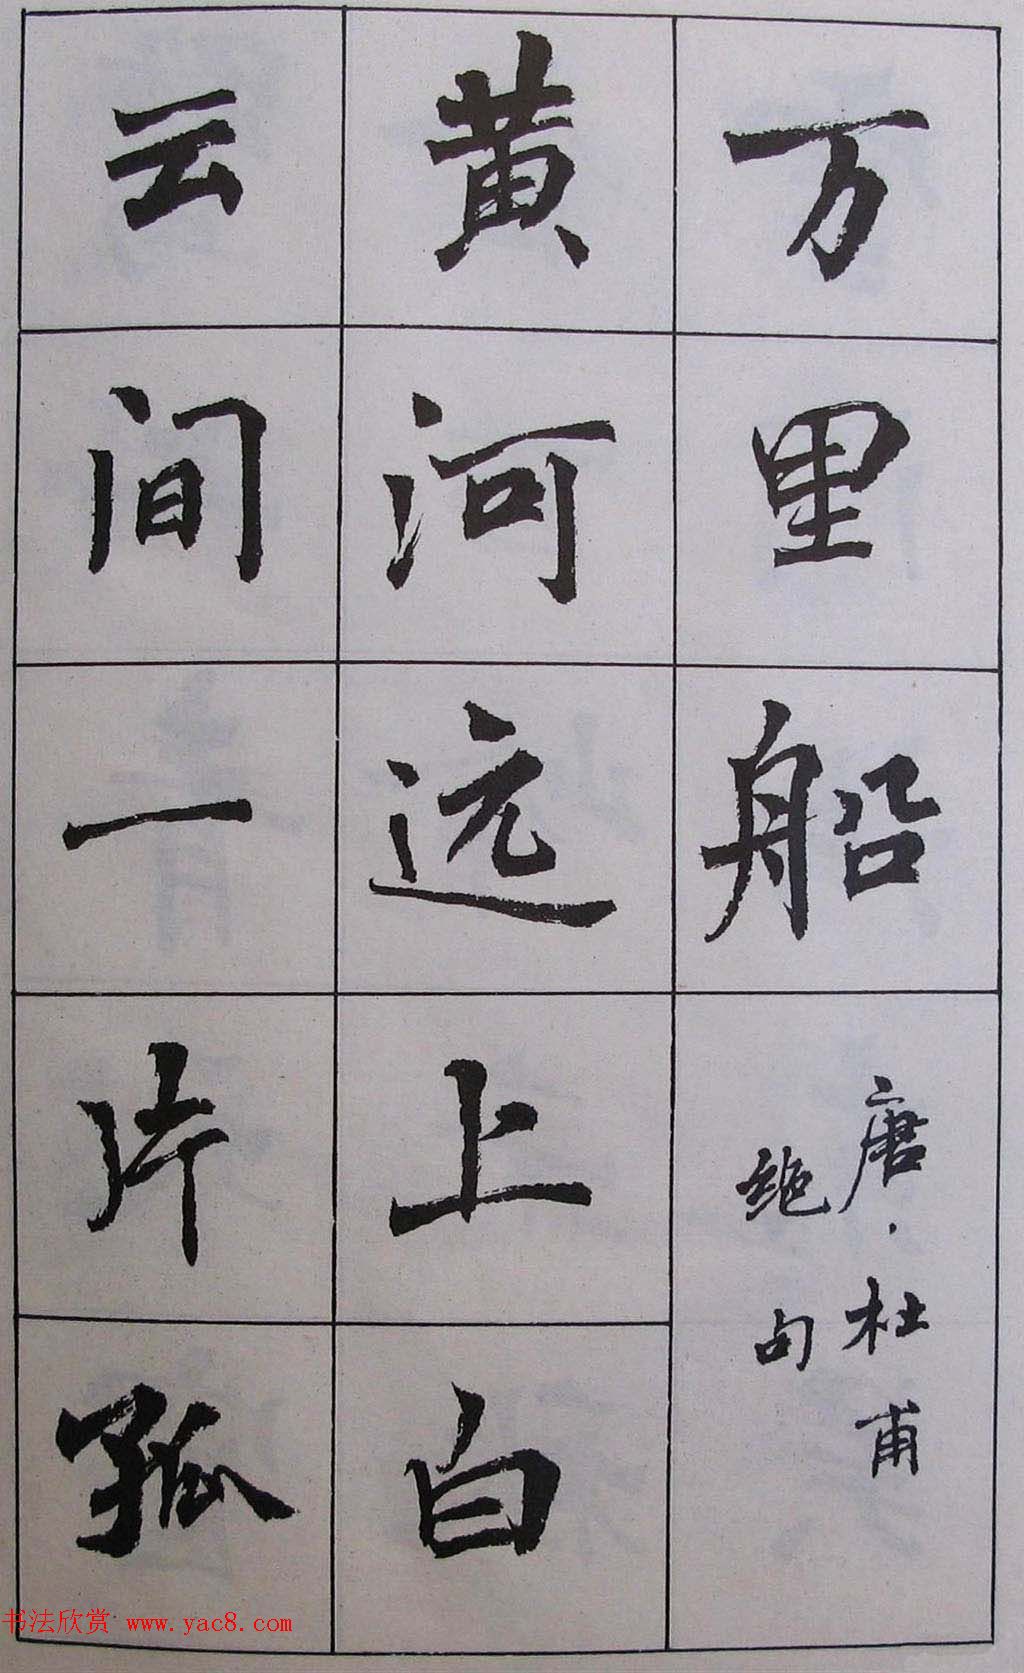 万里船
唐·杜甫
绝句
黄河远上白
云间一片孤
书法欣赏 www.yac8.com